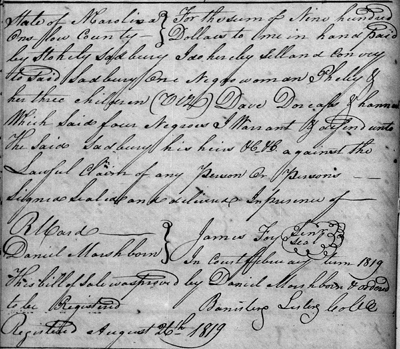 State of N Carolina } For the sum of Nine hundred
Onslow County — } Dollars to me in hand paid
by Stokely Sadbury I do hereby sell and convey
to said Sadbury One Negro woman Phelby &
her three children (Viz) Dave Dorcas & hannah
Which said four Negroes I Warrant & Defend unto
the said Sadbury his heirs &c &c against the
Lawful Claim of any Person Or Persons —
Signed Sealed and delivered In presence of —
R Ward — } James Foy Senr Seal
Daniel Marshborn } In Court February Term 1819
This bill of Sale was proved by Daniel Marshborn & ordered
to be Registered Banister Lester
Registered August 26th 1819